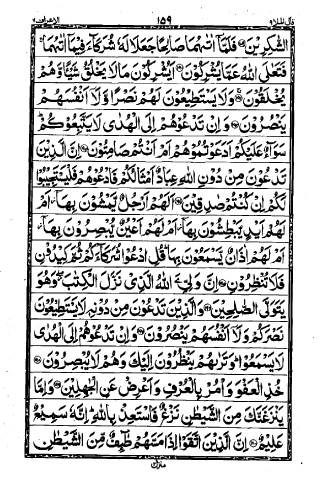 قال الملا ٩ ١٥٩ الاعراف ٧
الشّٰكِرِيْنَ فَلَمَّاۤ اٰتٰىهُمَا صَالِحًا جَعَلَا لَهٗ شُرَكَآءَ فِيْمَاۤ اٰتٰىهُمَا
فَتَعٰلَى اللّٰهُ عَمَّا يُشْرِكُوْنَ اَيُشْرِكُوْنَ مَا لَا يَخْلُقُ شَيْـًٔا وَّهُمْ
يُخْلَقُوْنَ وَلَا يَسْتَطِيْعُوْنَ لَهُمْ نَصْرًا وَّلَاۤ اَنْفُسَهُمْ
يَنْصُرُوْنَ وَاِنْ تَدْعُوْهُمْ اِلَى الْهُدٰى لَا يَتَّبِعُوْكُمْ
سَوَآءٌ عَلَيْكُمْ اَدَعَوْتُمُوْهُمْ اَمْ اَنْتُمْ صَامِتُوْنَ اِنَّ الَّذِيْنَ
تَدْعُوْنَ مِنْ دُوْنِ اللّٰهِ عِبَادٌ اَمْثَالُكُمْ فَادْعُوْهُمْ فَلْيَسْتَجِيْبُوْا
لَكُمْ اِنْ كُنْتُمْ صٰدِقِيْنَ اَلَهُمْ اَرْجُلٌ يَّمْشُوْنَ بِهَاۤ اَمْ
لَهُمْ اَيْدٍ يَّبْطِشُوْنَ بِهَاۤ اَمْ لَهُمْ اَعْيُنٌ يُّبْصِرُوْنَ بِهَاۤ
اَمْ لَهُمْ اٰذَانٌ يَّسْمَعُوْنَ بِهَا قُلِ ادْعُوْا شُرَكَآءَكُمْ ثُمَّ كِيْدُوْنِ
فَلَا تُنْظِرُوْنِ اِنَّ وَلِيِّۦَ اللّٰهُ الَّذِيْ نَزَّلَ الْكِتٰبَ وَهُوَ
يَتَوَلَّى الصّٰلِحِيْنَ وَالَّذِيْنَ تَدْعُوْنَ مِنْ دُوْنِهٖ لَا يَسْتَطِيْعُوْنَ
نَصْرَكُمْ وَلَاۤ اَنْفُسَهُمْ يَنْصُرُوْنَ وَاِنْ تَدْعُوْهُمْ اِلَى الْهُدٰى
لَا يَسْمَعُوْا وَتَرٰىهُمْ يَنْظُرُوْنَ اِلَيْكَ وَهُمْ لَا يُبْصِرُوْنَ
خُذِ الْعَفْوَ وَاْمُرْ بِالْعُرْفِ وَاَعْرِضْ عَنِ الْجٰهِلِيْنَ وَاِمَّا
يَنْزَغَنَّكَ مِنَ الشَّيْطٰنِ نَزْغٌ فَاسْتَعِذْ بِاللّٰهِ اِنَّهٗ سَمِيْعٌ
عَلِيْمٌ اِنَّ الَّذِيْنَ اتَّقَوْا اِذَا مَسَّهُمْ طٰٓئِفٌ مِّنَ الشَّيْطٰنِ
منزل